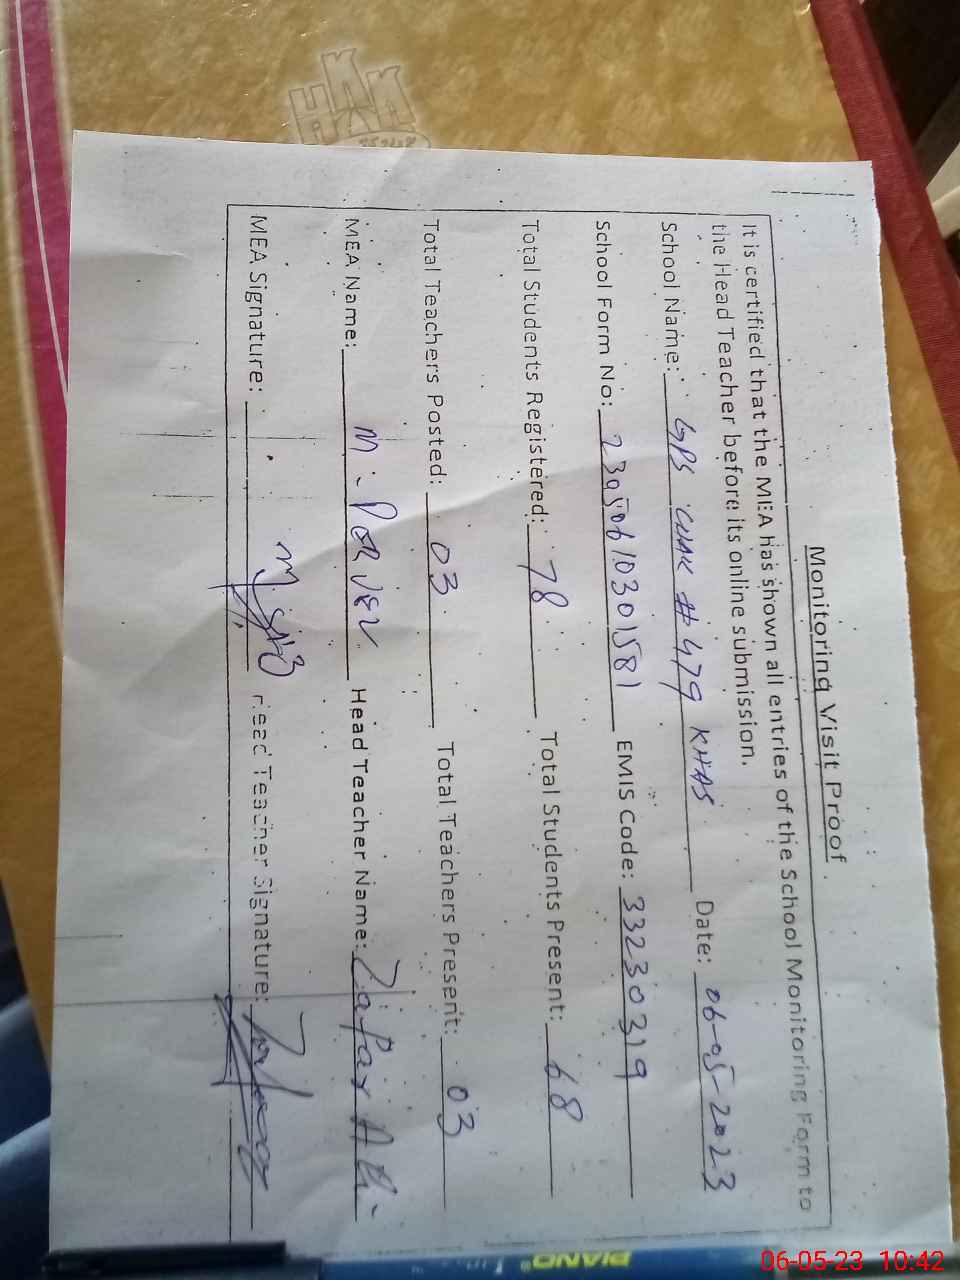 Monitoring Visit Proof
It is certified that the MEA has shown all entries of the School Monitoring Form to
the Head Teacher before its online submission.
School Name: GPS CHAK # 479 KHAS Date: 06-05-2023
School Form No: 23050610301581 EMIS Code: 33230319
Total Students Registered: 78 Total Students Present: 68
Total Teachers Posted: 03 Total Teachers Present: 03
MEA Name: M. Pervez Head Teacher Name: Zafar Ali
MEA Signature: Head Teacher Signature:
PIANO
06-05-23 10:42